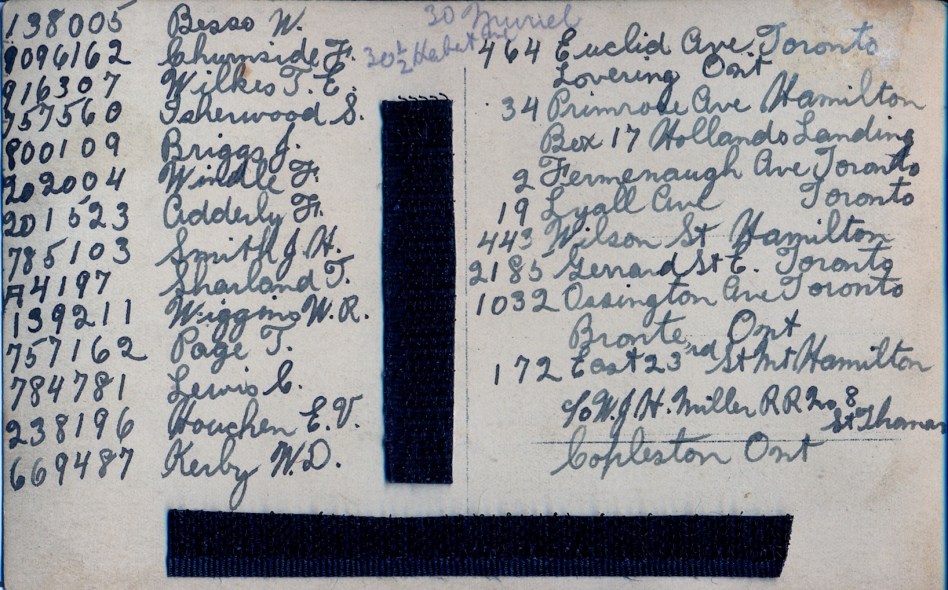 30 Muriel
138005 Besso W. 464 Euclid Ave. Toronto
9096162 Churnside F. Lovering Ont
916307 Wilkes T. E. 34 Primrose Ave Hamilton
757560 Isherwood S. Box 17 Hollands Landing
800109 Briggs J. 2 Fermenaugh Ave Toronto
202004 Windle F. 19 Lyall Ave Toronto
201523 Adderly F. 443 Wilson St Hamilton
785103 Smith J. H. 2185 Gerrard St E. Toronto
A4197 Sharland T. 1032 Ossington Ave Toronto
139211 Wiggins W. R. Bronte, Ont
757162 Page T. 172 East 23rd St Mt Hamilton
784781 Lewis C. c/o W. J. H. Miller R R No 8 St Thomas
238196 Houchen E. V. Copleston Ont
669487 Kerby W. D.